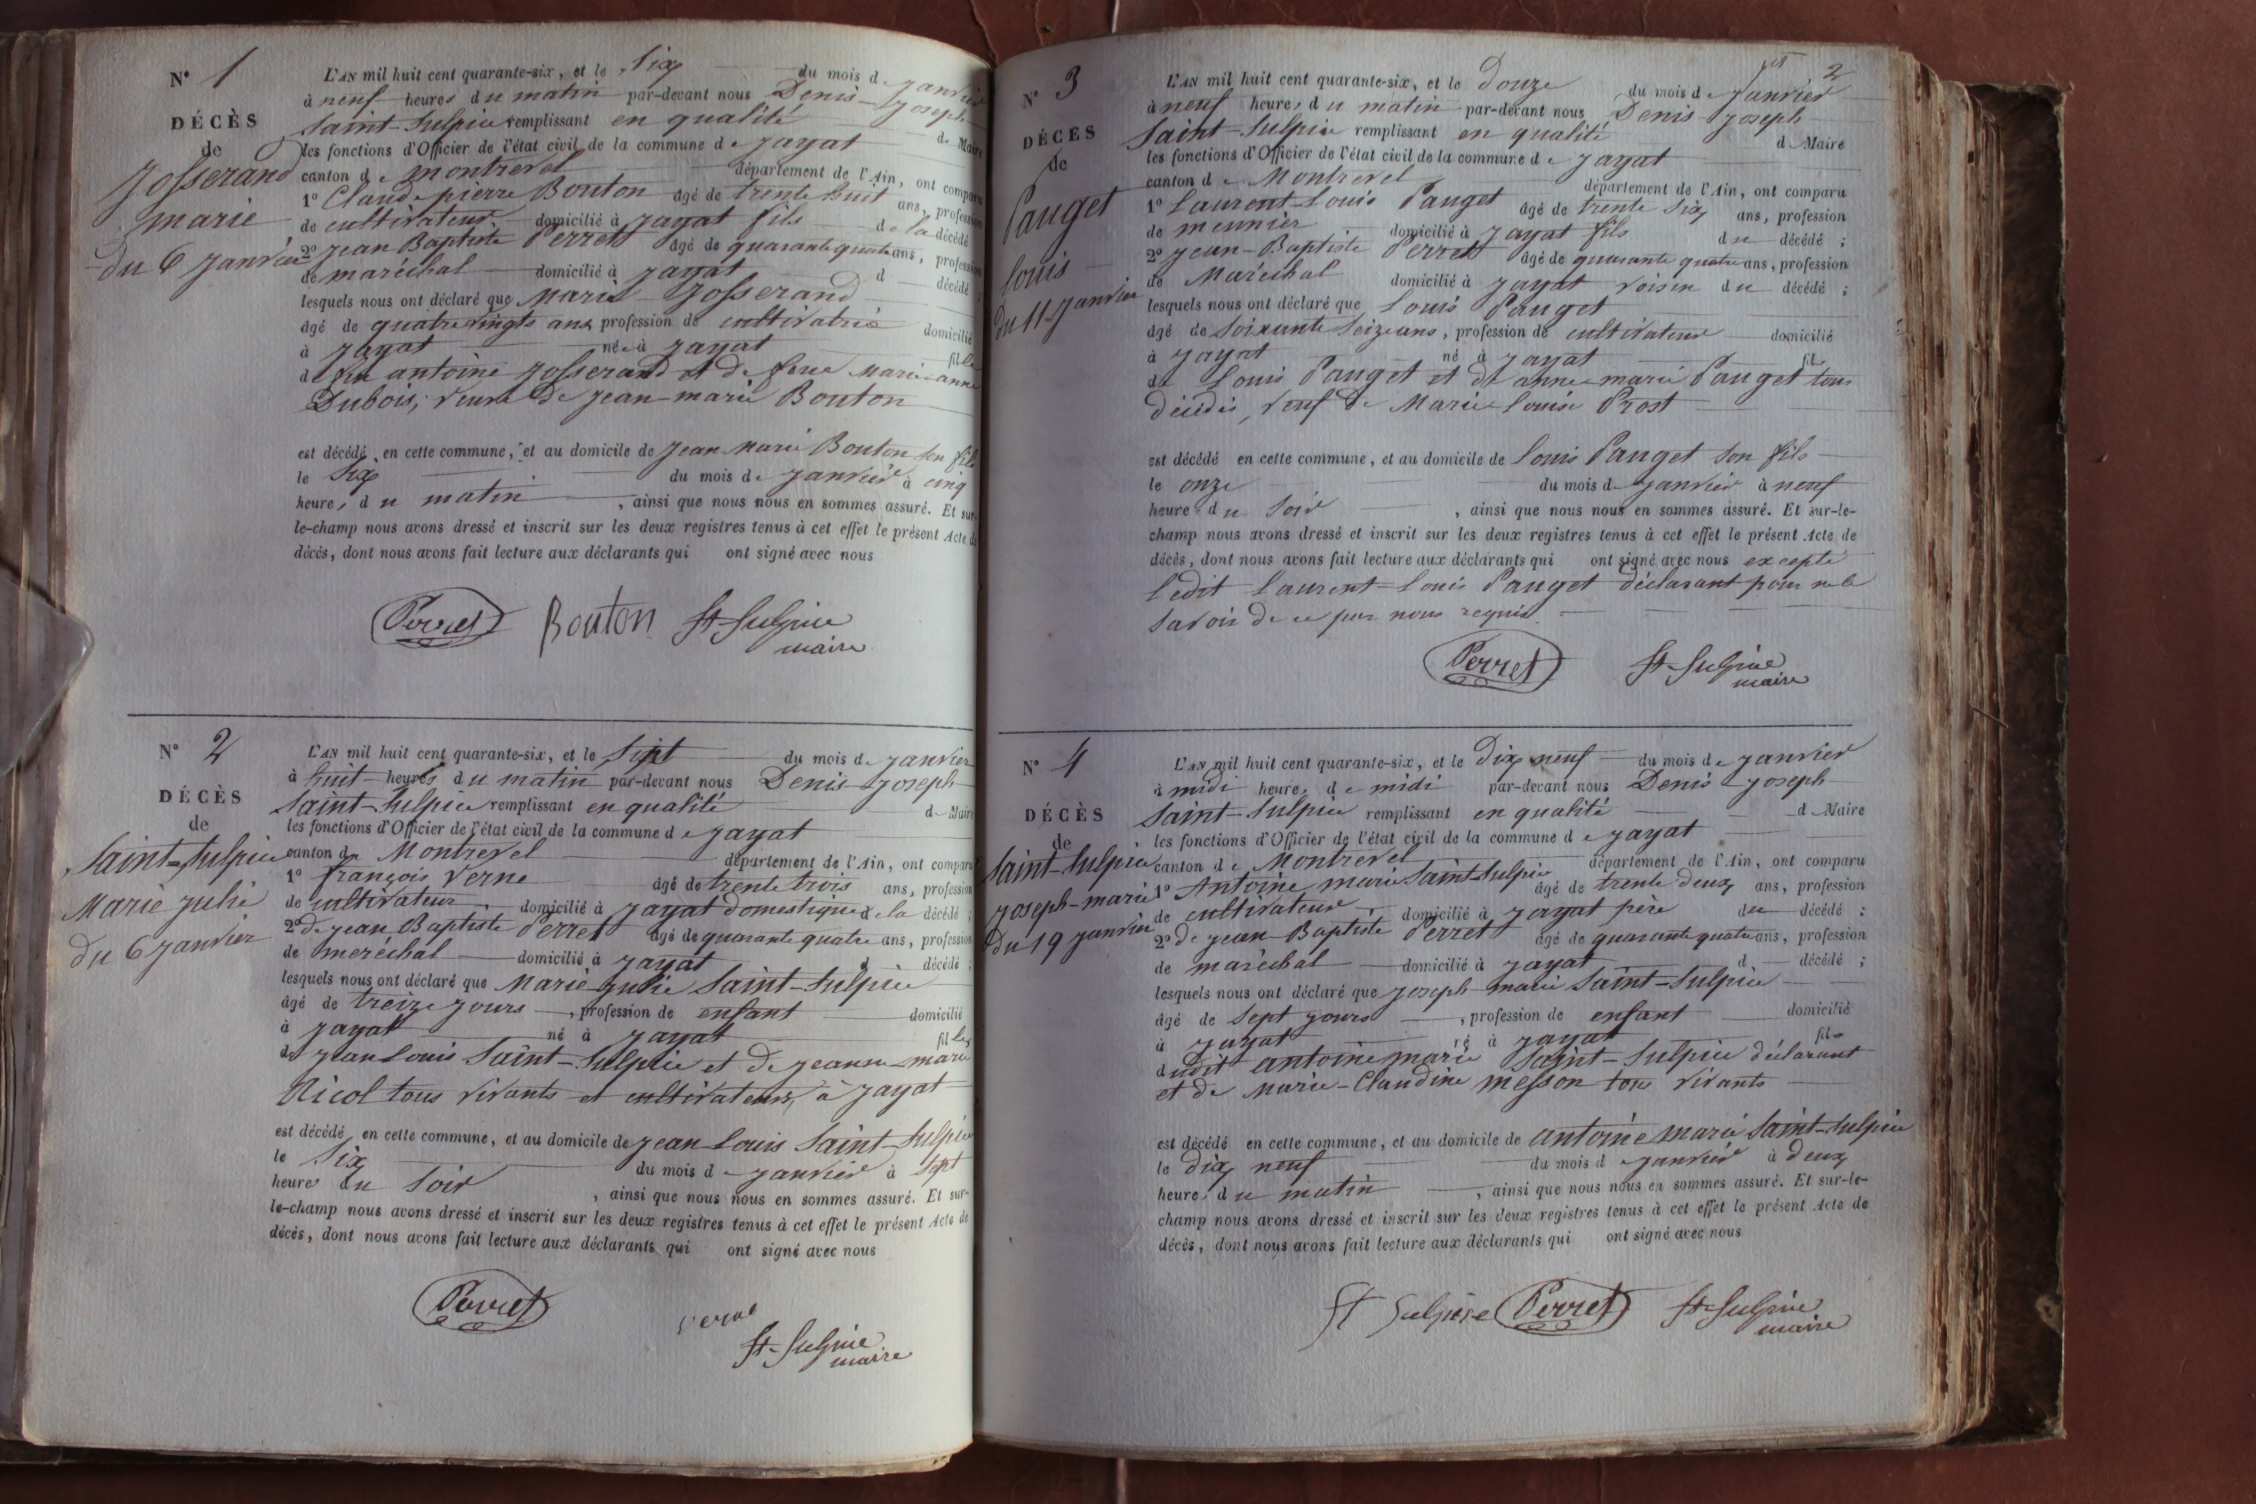 N° 1
DÉCÈS
de
Josserand
marie
du 6 janvier
L'AN mil huit cent quarante-six, et le six du mois de janvier
à neuf heures du matin par-devant nous Denis-Joseph
Saint-Sulpice remplissant en qualité de Maire
les fonctions d'Officier de l'état civil de la commune de jayat
canton de montrevel département de l'Ain, ont comparu
1° Claude pierre Bouton âgé de trente huit ans, profession
de cultivateur domicilié à jayat fils de la décédé
2° jean Baptiste Perret âgé de quarante quatre ans, profession
de maréchal domicilié à jayat d décédé ;
lesquels nous ont déclaré que Marie Josserand
âgé de quatrevingts ans profession de cultivatrice domicilié
à jayat née à jayat fille
de feu antoine Josserand et de feue Marie-anne
Dubois, veuve de jean-marie Bouton
est décédé en cette commune, et au domicile de jean Marie Bouton son fils
le six du mois de janvier à cinq
heures du matin, ainsi que nous nous en sommes assuré. Et sur-
le-champ nous avons dressé et inscrit sur les deux registres tenus à cet effet le présent Acte de
décès, dont nous avons fait lecture aux déclarants qui ont signé avec nous
Perret Bouton St-Sulpice
maire
N° 2
DÉCÈS
de
Saint-Sulpice
Marie julie
du 6 janvier
L'AN mil huit cent quarante-six, et le sept du mois de janvier
à huit heures du matin par-devant nous Denis Joseph
Saint-Sulpice remplissant en qualité de Maire
les fonctions d'Officier de l'état civil de la commune de jayat
canton de Montrevel département de l'Ain, ont comparu
1° françois Verne âgé de trente trois ans, profession
de cultivateur domicilié à jayat domestique de la décédé ;
2° de jean Baptiste Perret âgé de quarante quatre ans, profession
de meréchal domicilié à jayat d décédé ;
lesquels nous ont déclaré que Marie julie Saint-Sulpice
âgé de treize jours, profession de enfant domicilié
à jayat né à jayat fille
de jean Louis Saint-Sulpice et de jeanne-marie
Nicol tous vivants et cultivateurs, à jayat
est décédé en cette commune, et au domicile de jean Louis Saint-Sulpice
le six du mois de janvier à sept
heures du soir, ainsi que nous nous en sommes assuré. Et sur-
le-champ nous avons dressé et inscrit sur les deux registres tenus à cet effet le présent Acte de
décès, dont nous avons fait lecture aux déclarants qui ont signé avec nous
Perret Verne
St-Sulpice
maire
2
N° 3
DÉCÈS
de
Pauget
louis
du 11 janvier
L'AN mil huit cent quarante-six, et le douze du mois de janvier
à neuf heures du matin par-devant nous Denis-Joseph
Saint-Sulpice remplissant en qualité d Maire
les fonctions d'Officier de l'état civil de la commune de jayat
canton de Montrevel département de l'Ain, ont comparu
1° Laurent-Louis Pauget âgé de trente six ans, profession
de meunier domicilié à jayat fils du décédé ;
2° jean-Baptiste Perret âgé de quarante quatre ans, profession
de Maréchal domicilié à jayat voisin du décédé ;
lesquels nous ont déclaré que Louis Pauget
âgé de soixante seize ans, profession de cultivateur domicilié
à jayat né à jayat fils
de Louis Pauget et de anne-marie Pauget tous
décédés, veuf de Marie Louise Prost
est décédé en cette commune, et au domicile de Louis Pauget son fils
le onze du mois de janvier à neuf
heure du soir, ainsi que nous nous en sommes assuré. Et sur-le-
champ nous avons dressé et inscrit sur les deux registres tenus à cet effet le présent Acte de
décès, dont nous avons fait lecture aux déclarants qui ont signé avec nous excepté
ledit Laurent-Louis Pauget déclarant pour ne le
savoir de ce par nous requis.
Perret St-Sulpice
maire
N° 4
DÉCÈS
de
Saint-Sulpice
joseph-marie
du 19 janvier
L'AN mil huit cent quarante-six, et le dix neuf du mois de janvier
à midi heure, de midi par-devant nous Denis Joseph
Saint-Sulpice remplissant en qualité d Maire
les fonctions d'Officier de l'état civil de la commune de jayat
canton de Montrevel département de l'Ain, ont comparu
1° Antoine marie Saint-Sulpice âgé de trente deux ans, profession
de cultivateur domicilié à jayat père du décédé ;
2° de jean-Baptiste Perret âgé de quarante quatre ans, profession
de maréchal domicilié à jayat d décédé ;
lesquels nous ont déclaré que joseph marie Saint-Sulpice
âgé de sept jours, profession de enfant domicilié
à jayat né à jayat fils
dudit antoine marie Saint-Sulpice déclarant
et de marie-Claudine messon tous vivants
est décédé en cette commune, et au domicile de antoine marie Saint-Sulpice
le dix neuf du mois de janvier à deux
heures du matin, ainsi que nous nous en sommes assuré. Et sur-le-
champ nous avons dressé et inscrit sur les deux registres tenus à cet effet le présent Acte de
décès, dont nous avons fait lecture aux déclarants qui ont signé avec nous
St Sulpice Perret St-Sulpice
maire